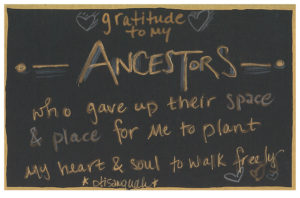 gratitude
to my
ANCESTORS
who gave up their space
& place for me to plant
my heart & soul to walk freely